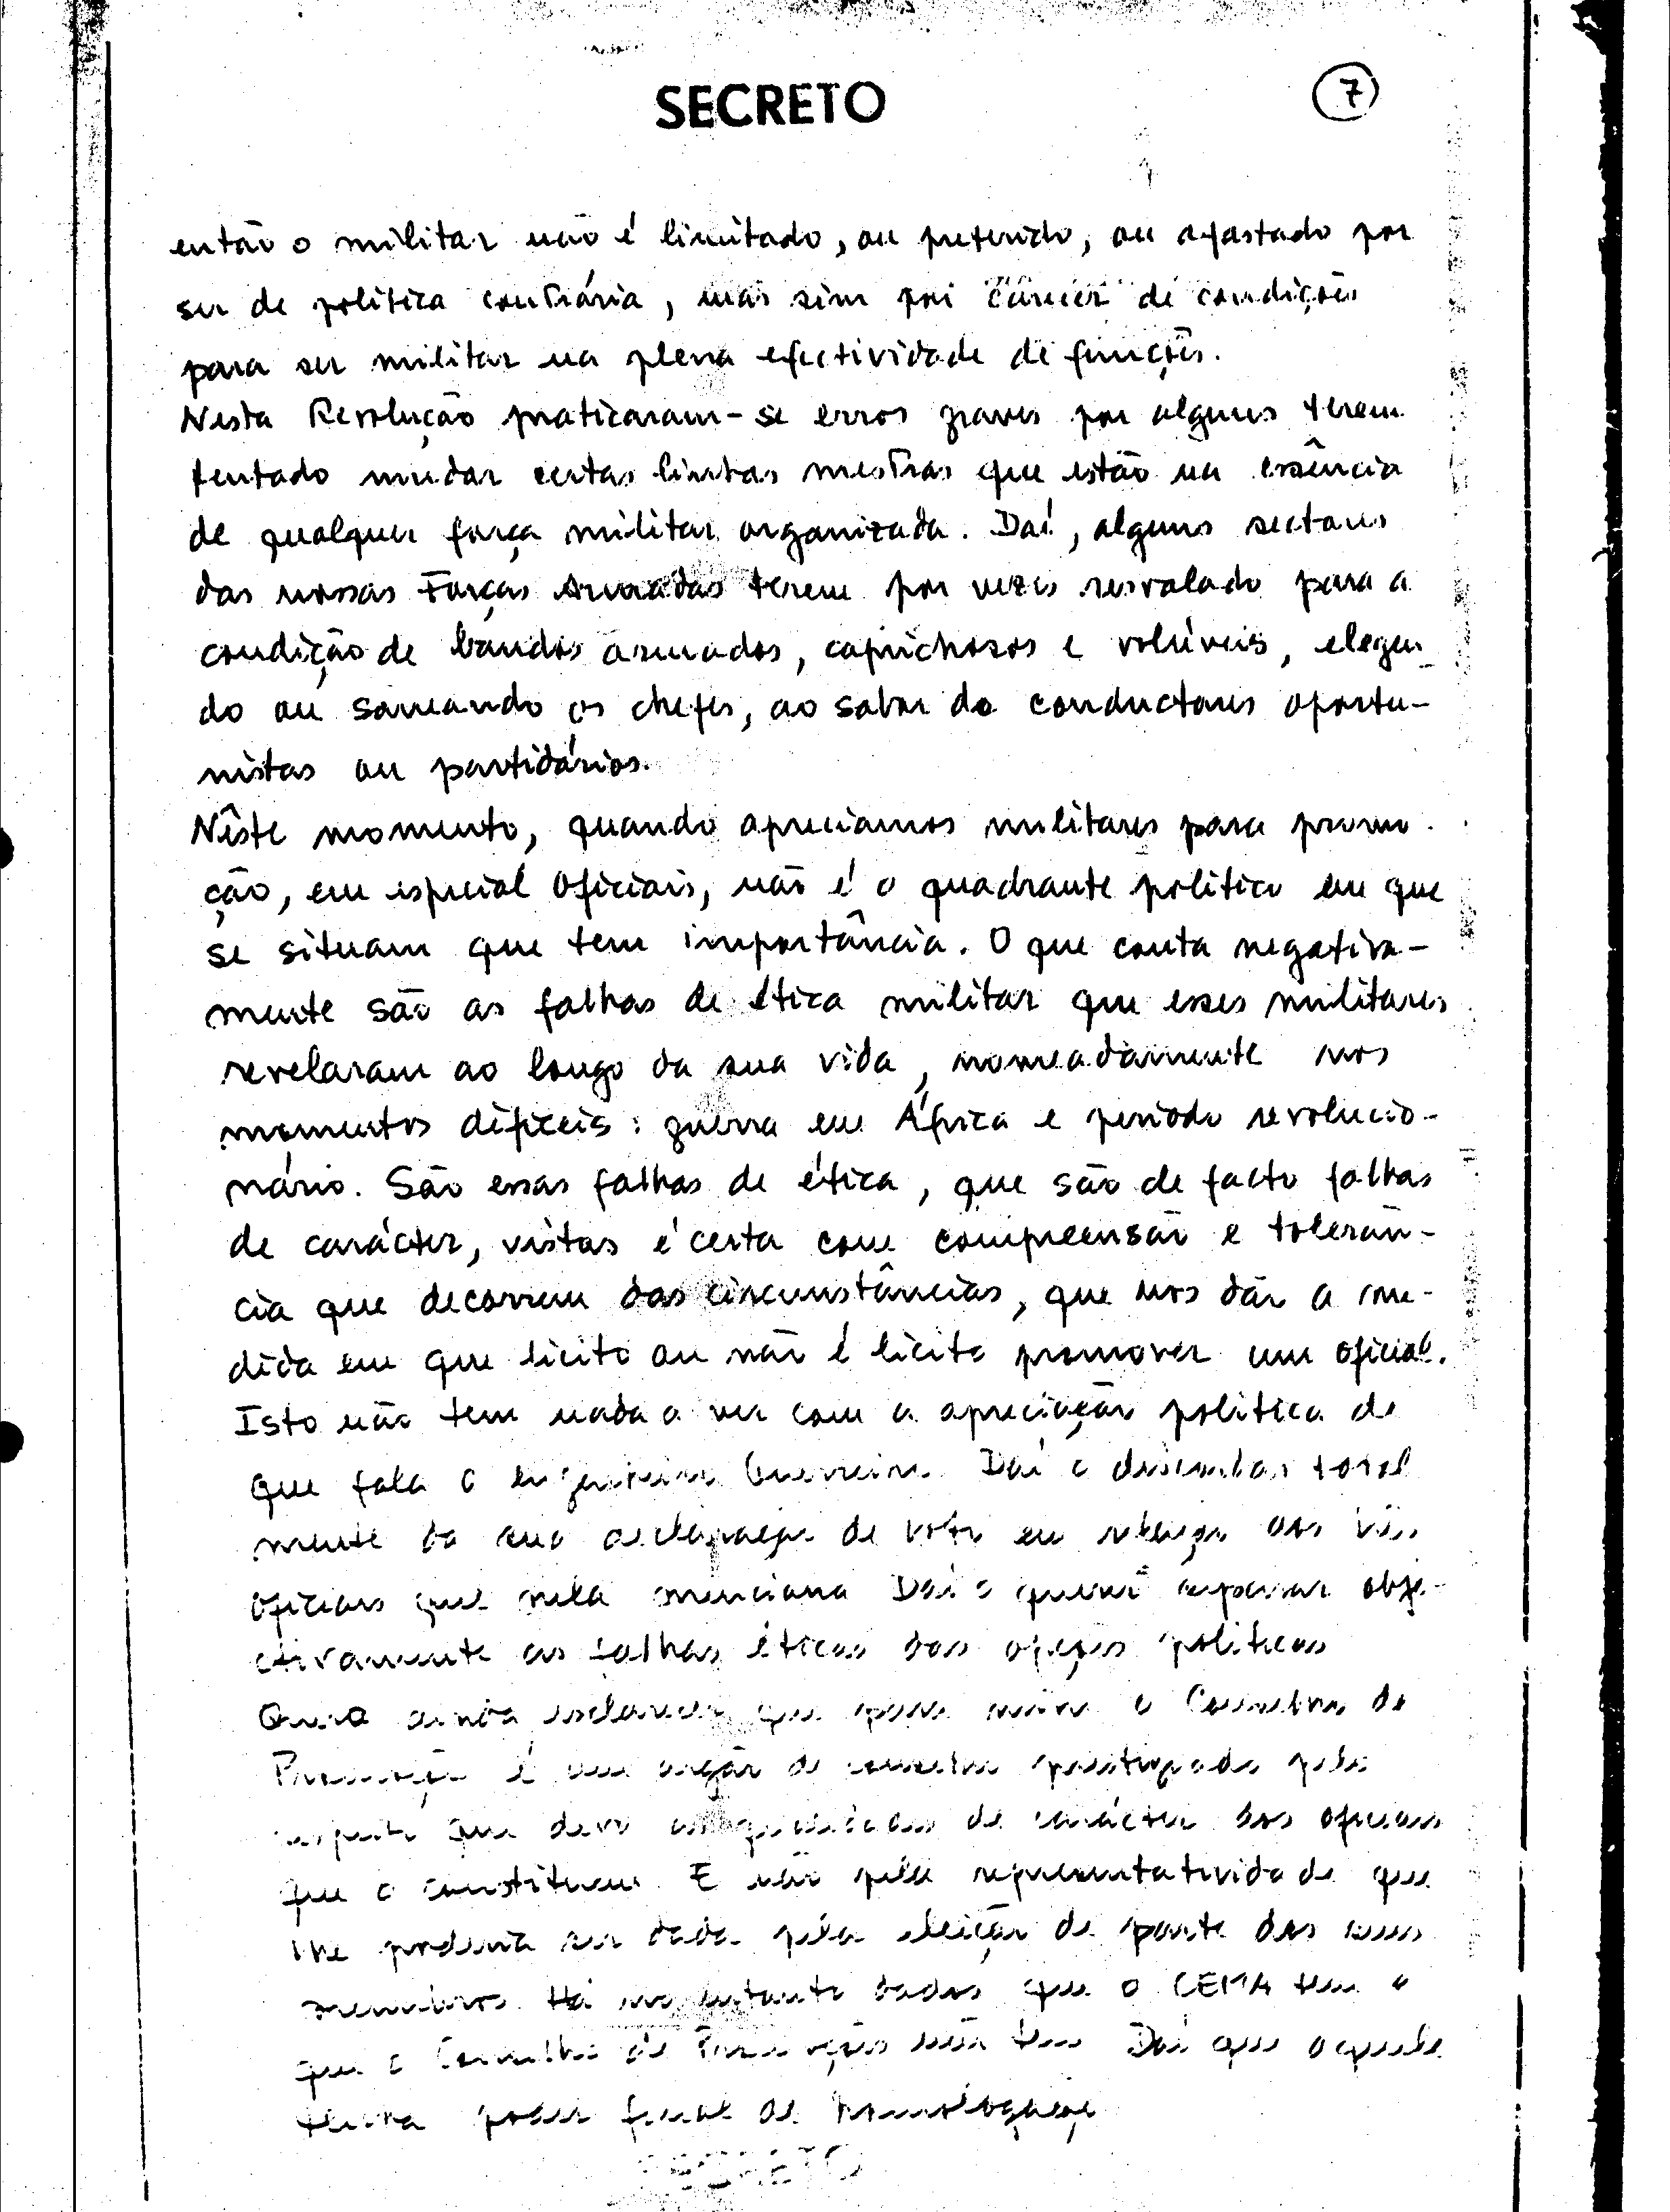 SECRETO
7
então o militar não é limitado, ou preterido, ou afastado por
ser de política contrária, mas sim por carecer de condições
para ser militar na plena efectividade de funções.
Nesta Revolução praticaram-se erros graves por alguns terem
tentado mudar certas linhas mestras que estão na essência
de qualquer força militar organizada. Daí, alguns sectores
das nossas Forças Armadas terem por vezes resvalado para a
condição de bandos armados, caprichosos e volúveis, elegen
do ou saneando os chefes, ao sabor de conductores oportu-
nistas ou partidários.
Nêste momento, quando apreciamos militares para promo-
ção, em especial Oficiais, não é o quadrante político em que
se situam que tem importância. O que conta negativa-
mente são as falhas de ética militar que esses militares
revelaram ao longo da sua vida, nomeadamente nos
momentos difíceis: guerra em África e período revolucio-
nário. São essas falhas de ética, que são de facto falhas
de carácter, vistas é certo com compreensão e tolerân-
cia que decorrem das circunstâncias, que nos dão a me-
dida em que lícito ou não é lícito promover um oficial.
Isto não tem nada a ver com a apreciação política de
que fala o engenheiro Guerreiro. Daí o discordar total
mente da sua declaração de voto em relação aos
oficiais que nela menciona Daí o querer separar obje-
ctivamente as falhas éticas das opções políticas
Quero ainda esclarecer que para mim o Conselho de
Promoção é um orgão de consulta prestigiado pelo
respeito que devo às qualidades de carácter dos oficiais
que o constituem. E não pela representatividade que
lhe poderia ser dada pela eleição de parte dos seus
membros. Há no entanto dados que o CEMA tem e
que o Conselho de Promoção não tem Daí que
tenha poder final de homologação
SECRETO